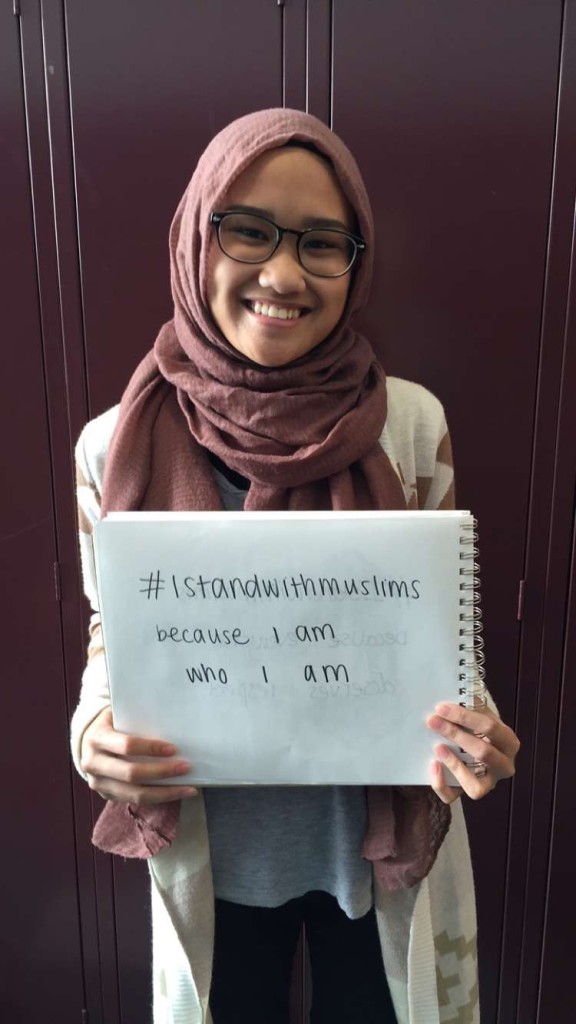 #Istandwithmuslims
because I am
who I am